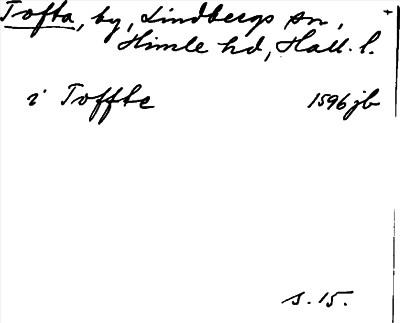 Tofta, by, Lindbergs sn,
Himle hd, Hall. l.
i Toffte 1596 jb
s. 15.